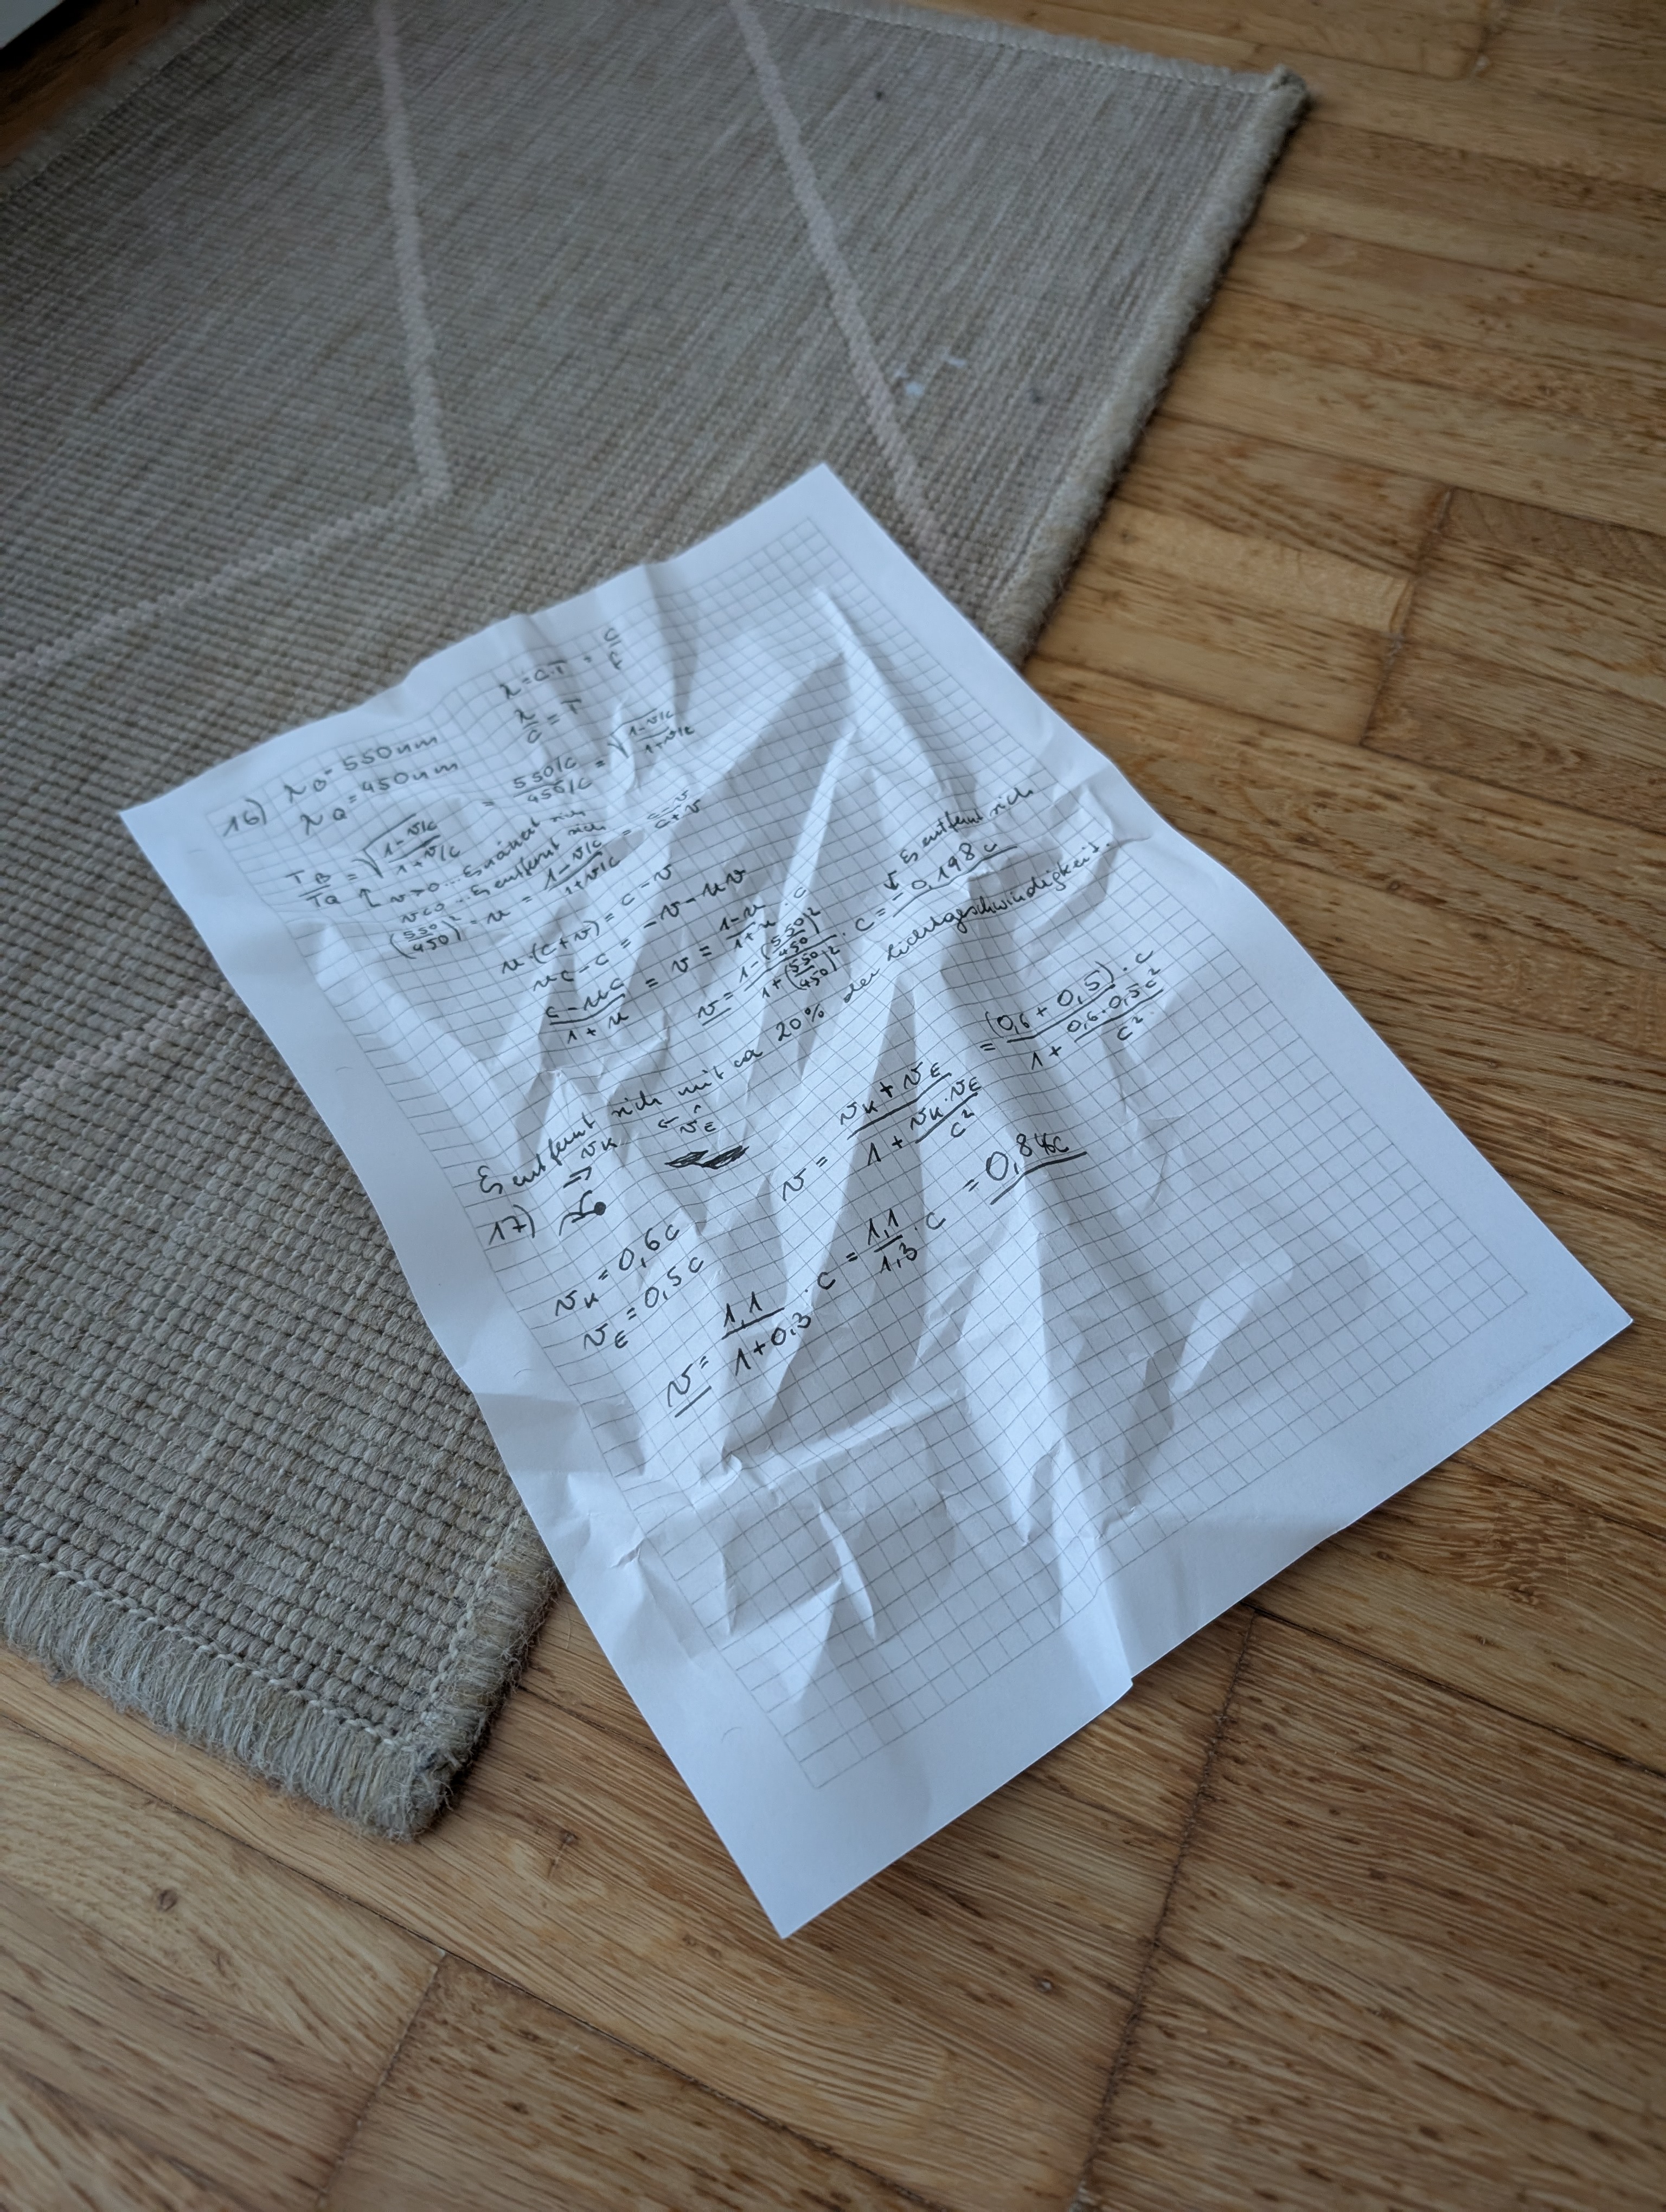 16) λ_B = 550nm    λ = c·T = c/f
λ_Q = 450nm    λ/c = T
T_B/T_Q = √((1-v/c)/(1+v/c)) = (550/c)/(450/c) = √((1-v/c)/(1+v/c))
↑ v>0 ... Es nähert sich
v<0 ... Es entfernt sich
(550/450)² = u = (1-v/c)/(1+v/c) = (c-v)/(c+v)
u·(c+v) = c-v
uc-c = -v-uv
(c-uc)/(1+u) = v = (1-u)/(1+u) · c
↙ Es entfernt sich
v = (1-(550/450)²)/(1+(550/450)²) · c = -0,198c
Es entfernt sich mit ca 20% der Lichtgeschwindigkeit.
17) ⇒ v_K ← v_E
v_K = 0,6c    v = (v_K + v_E)/(1 + (v_K·v_E)/c²) = ((0,6 + 0,5)·c)/(1 + (0,6·0,5c²)/c²)
v_E = 0,5c
v = 1,1/(1+0,3) · c = 1,1/1,3 · c = 0,846c